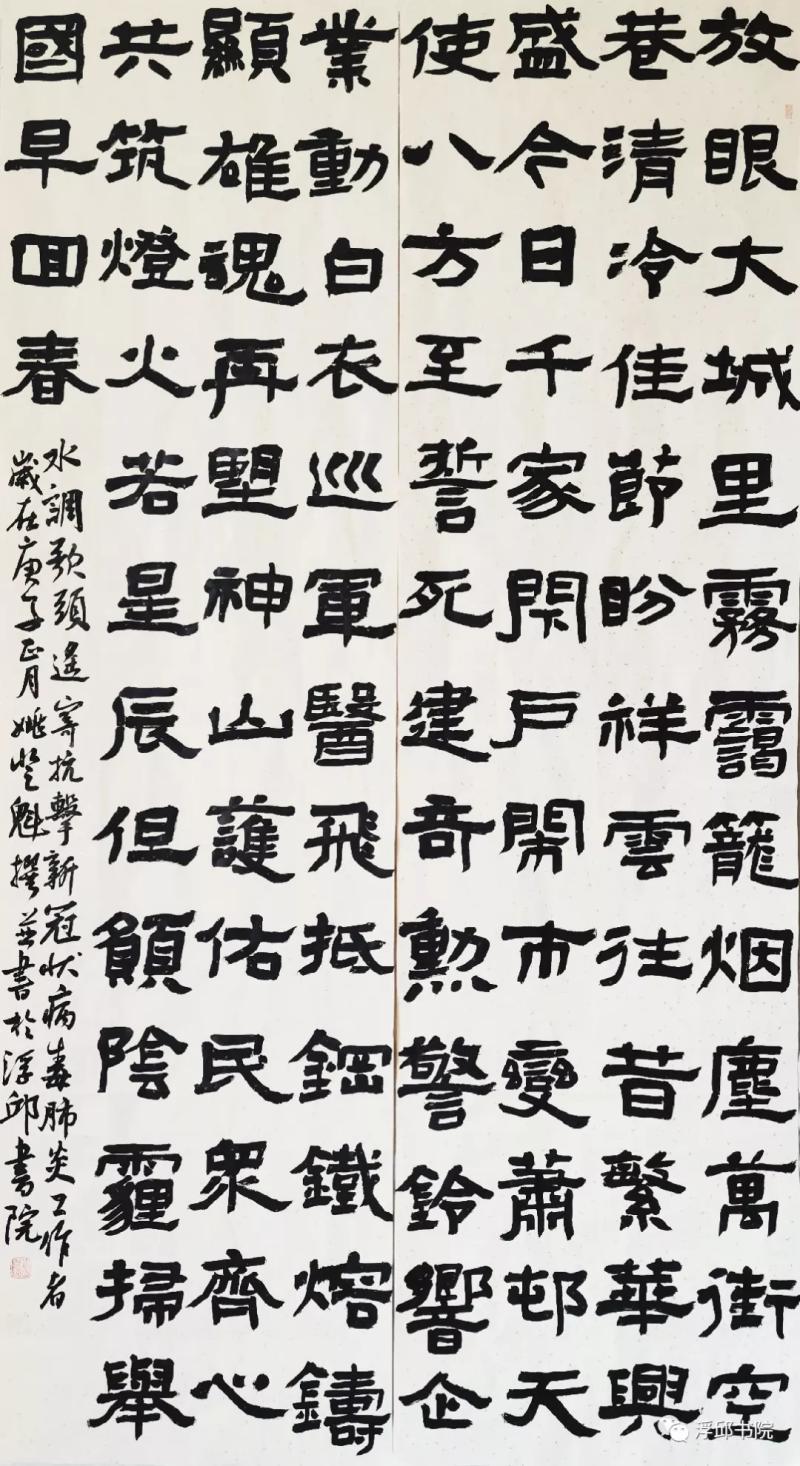 放眼大城里霧靄籠烟塵萬街空
巷清冷佳節盼祥雲往昔繁華興
盛今日千家閇戶閙市變蕭邨天
使八方至誓死建奇勳警鈴響企
業動白衣巡軍醫飛抵鋼鐵熔鑄
顯雄魂再塑神山護佑民衆齊心
共筑燈火若星辰但願陰霾掃舉
國早回春
水調歌頭遥寄抗擊新冠狀病毒肺炎工作者
歲在庚子正月姚登魁撰並書於浮邱書院
浮邱书院